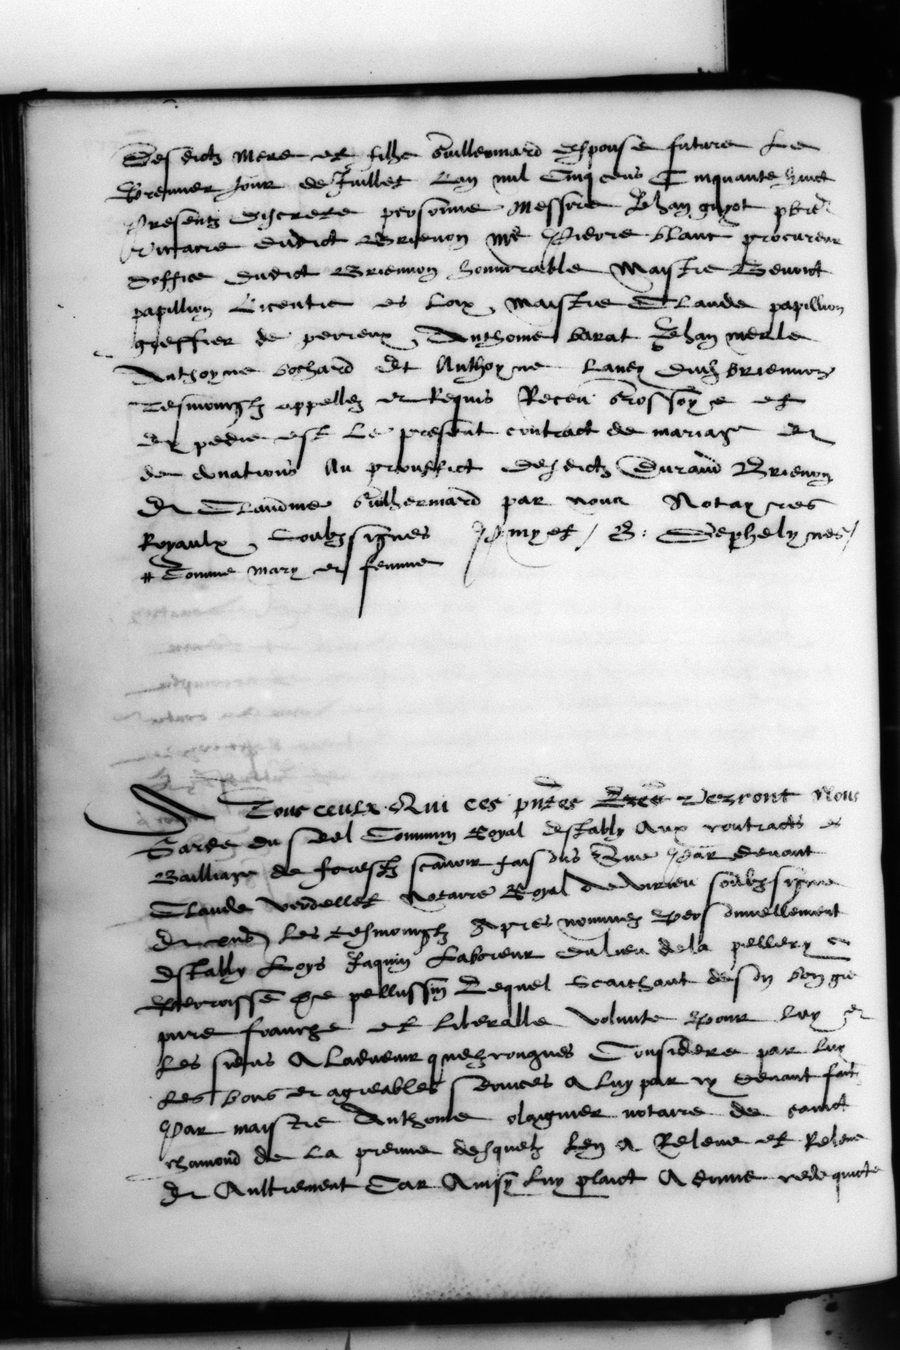 Desdictz mere et fille Guillermard espouse future Le
Premier Jour de Juillet Lan mil Cinq cens Cinquante huict
Presentz discrete personne Messire Jehan guyot pbre
Viccaire dudict Briennon Me Pierre blanc procureur
doffice dudict Briennon honnorable Maistre Benoict
papillion Licentie es Loix, maistre Claude papillion
greffier de perreux, Anthoine barat Jehan merle
Anthoyne bochard Et Anthoyne Lanex dudict briennon
Tesmoingtz appellez et Requis Receu Grossoye et
expedie est Le present contract de mariage Et
de donations Au prouffict desdictz Durand Briennon
Et Claudine Guillermard par nous Notayres
Royaulx, Soubzsignes
# Comme mary et femme
A Tous ceulx Qui ces pntes Lres Verront Nous
Garde du Seel Commun Royal estably Aux contractz es
Bailliage de forestz scavoir faisons Que Par devant
Claude Verdellet Notaire Royal de Virieu soubzsigne
Et tens Les tesmoingtz Apres nommez Personnellement
estably Loys Jaquin Laboreur du lieu de la pellery en
Perroisse de pellussin Lequel Scaichant de son bon gre
pure franche et Liberalle Volunte Pour Luy Et
Les siens A Ladvenir quelzconques Considere par Luy
Les bons et agreables services A luy par cy devant faictz
Par maistre Anthoine olagnier notaire de sainct
chamond de La preuve desquelz Len A Releve et Releve
Et Aultrement Car Ainsy Luy plaict A donne cede quicte